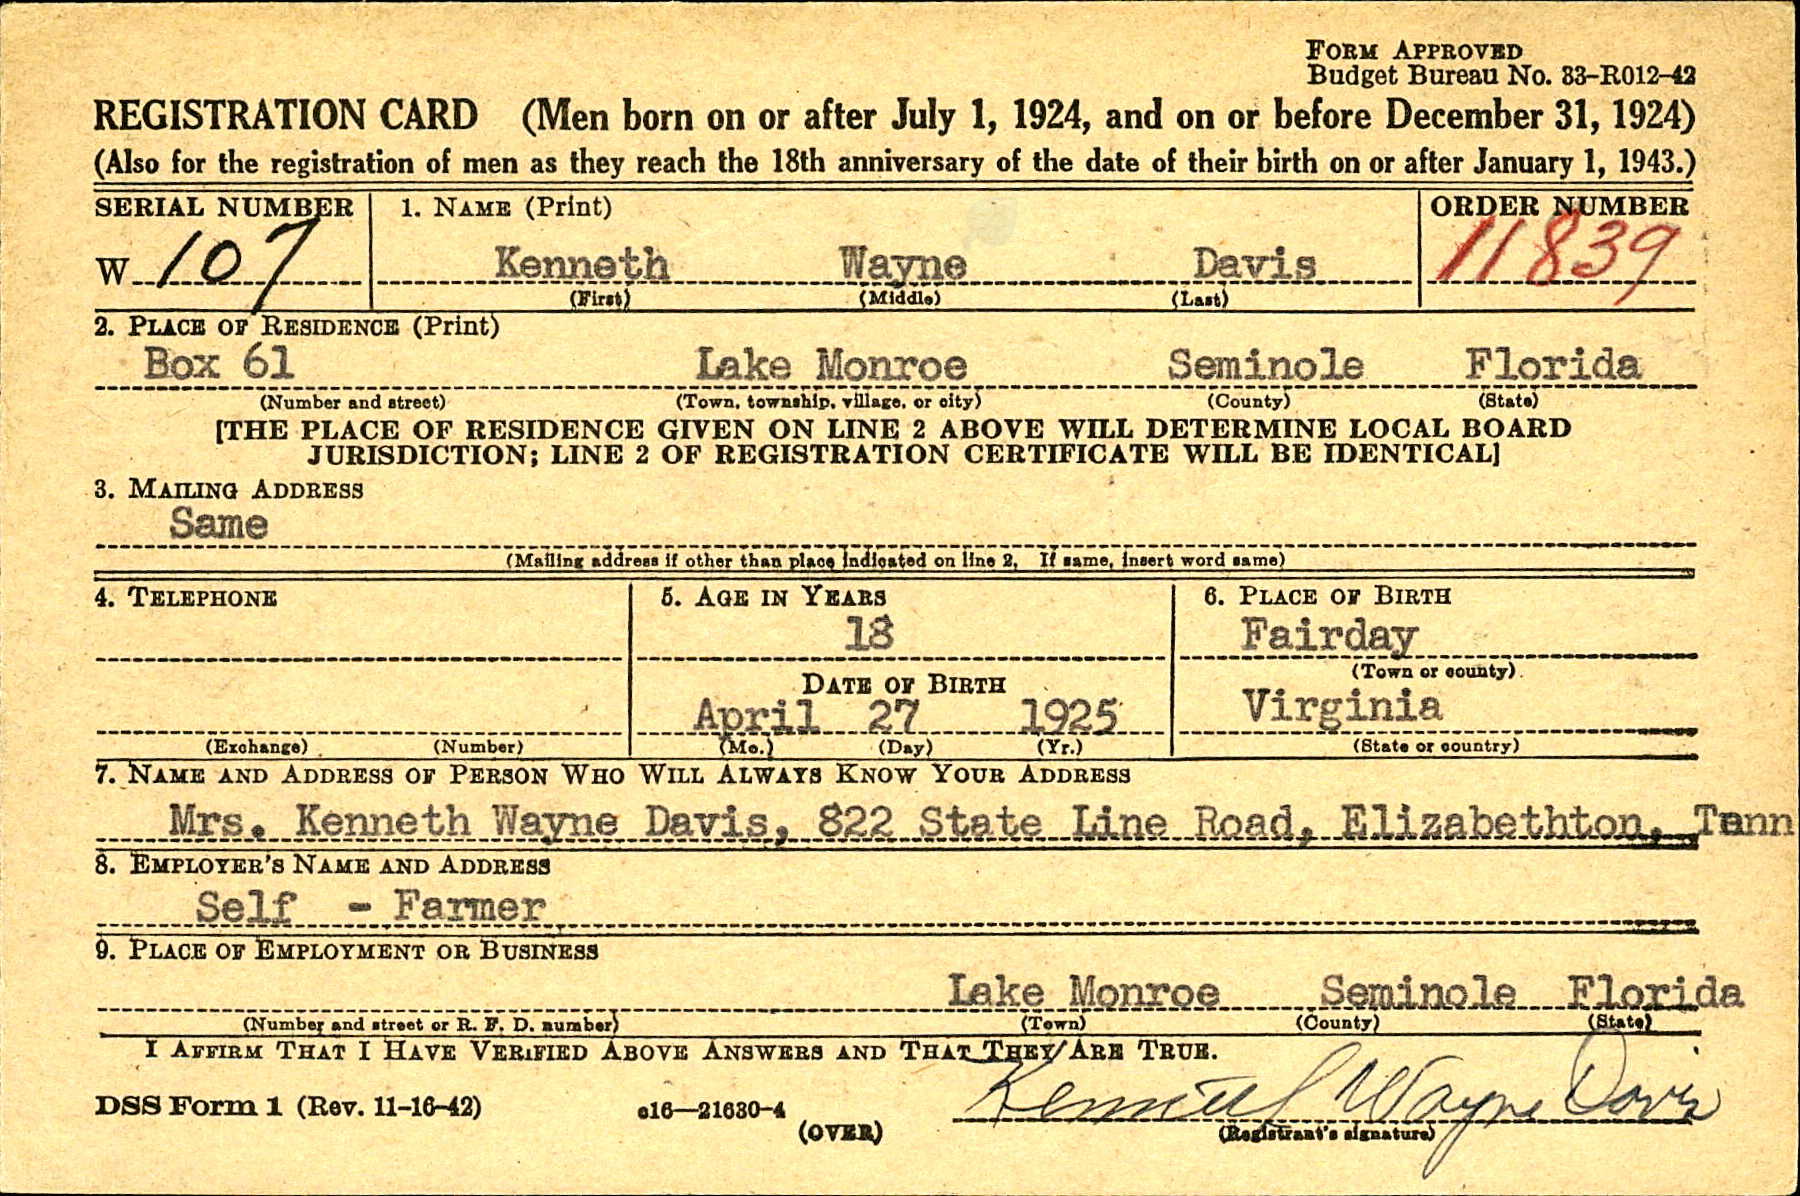 FORM APPROVED
Budget Bureau No. 33-R012-42
REGISTRATION CARD (Men born on or after July 1, 1924, and on or before December 31, 1924)
(Also for the registration of men as they reach the 18th anniversary of the date of their birth on or after January 1, 1943.)
SERIAL NUMBER 1. NAME (Print) ORDER NUMBER
W 107 Kenneth Wayne Davis 11839
(First) (Middle) (Last)
2. PLACE OF RESIDENCE (Print)
Box 61 Lake Monroe Seminole Florida
(Number and street) (Town, township, village, or city) (County) (State)
[THE PLACE OF RESIDENCE GIVEN ON LINE 2 ABOVE WILL DETERMINE LOCAL BOARD
JURISDICTION; LINE 2 OF REGISTRATION CERTIFICATE WILL BE IDENTICAL]
3. MAILING ADDRESS
Same
(Mailing address if other than place indicated on line 2. If same, insert word same)
4. TELEPHONE 5. AGE IN YEARS 6. PLACE OF BIRTH
18 Fairday
(Town or county)
DATE OF BIRTH
April 27 1925 Virginia
(Exchange) (Number) (Mo.) (Day) (Yr.) (State or country)
7. NAME AND ADDRESS OF PERSON WHO WILL ALWAYS KNOW YOUR ADDRESS
Mrs. Kenneth Wayne Davis, 822 State Line Road, Elizabethton, Tenn
8. EMPLOYER'S NAME AND ADDRESS
Self - Farmer
9. PLACE OF EMPLOYMENT OR BUSINESS
Lake Monroe Seminole Florida
(Number and street or R. F. D. number) (Town) (County) (State)
I AFFIRM THAT I HAVE VERIFIED ABOVE ANSWERS AND THAT THEY ARE TRUE.
DSS Form 1 (Rev. 11-16-42) c16—21630-4 Kenneth Wayne Davis
(OVER) (Registrant's signature)